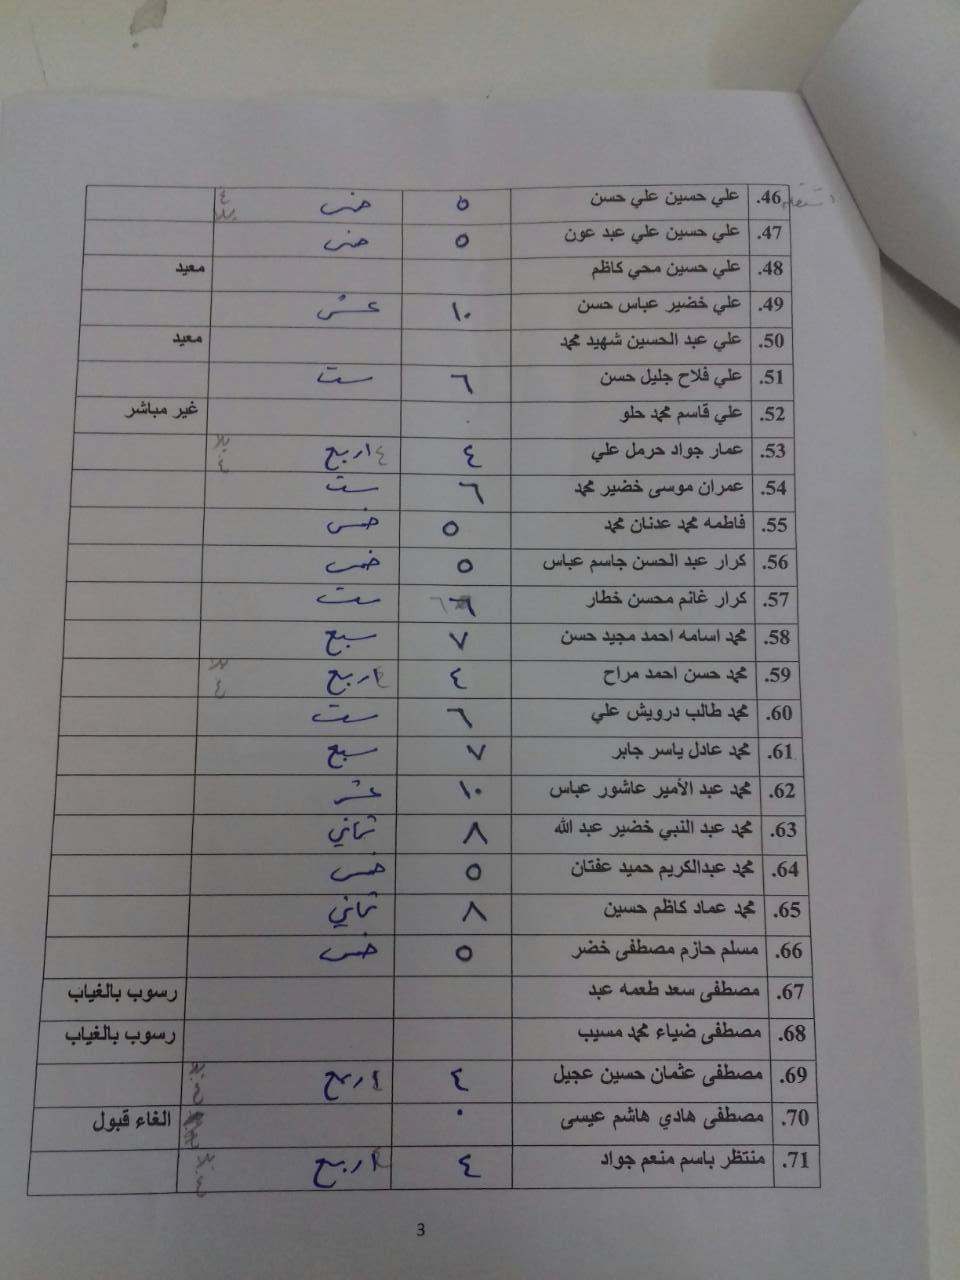 46. علي حسين علي حسن ٥ خمس
47. علي حسين علي عبد عون ٥ خمس
48. علي حسين محي كاظم معيد
49. علي خضير عباس حسن ١٠ عشر
50. علي عبد الحسين شهيد محمد معيد
51. علي فلاح جليل حسن ٦ ست
52. علي قاسم محمد حلو غير مباشر
53. عمار جواد حرمل علي ٤ اربع
54. عمران موسى خضير محمد ٦ ست
55. فاطمه محمد عدنان محمد ٥ خمس
56. كرار عبد الحسن جاسم عباس ٥ خمس
57. كرار غانم محسن خطار ٦ ست
58. محمد اسامه احمد مجيد حسن ٧ سبع
59. محمد حسن احمد مراح ٤ اربع
60. محمد طالب درويش علي ٦ ست
61. محمد عادل ياسر جابر ٧ سبع
62. محمد عبد الأمير عاشور عباس ١٠ عشر
63. محمد عبد النبي خضير عبد الله ٨ ثماني
64. محمد عبدالكريم حميد عفتان ٥ خمس
65. محمد عماد كاظم حسين ٨ ثماني
66. مسلم حازم مصطفى خضر ٥ خمس
67. مصطفى سعد طعمه عبد رسوب بالغياب
68. مصطفى ضياء محمد مسيب رسوب بالغياب
69. مصطفى عثمان حسين عجيل ٤ اربع
70. مصطفى هادي هاشم عيسى الغاء قبول
71. منتظر باسم منعم جواد ٤ اربع
3